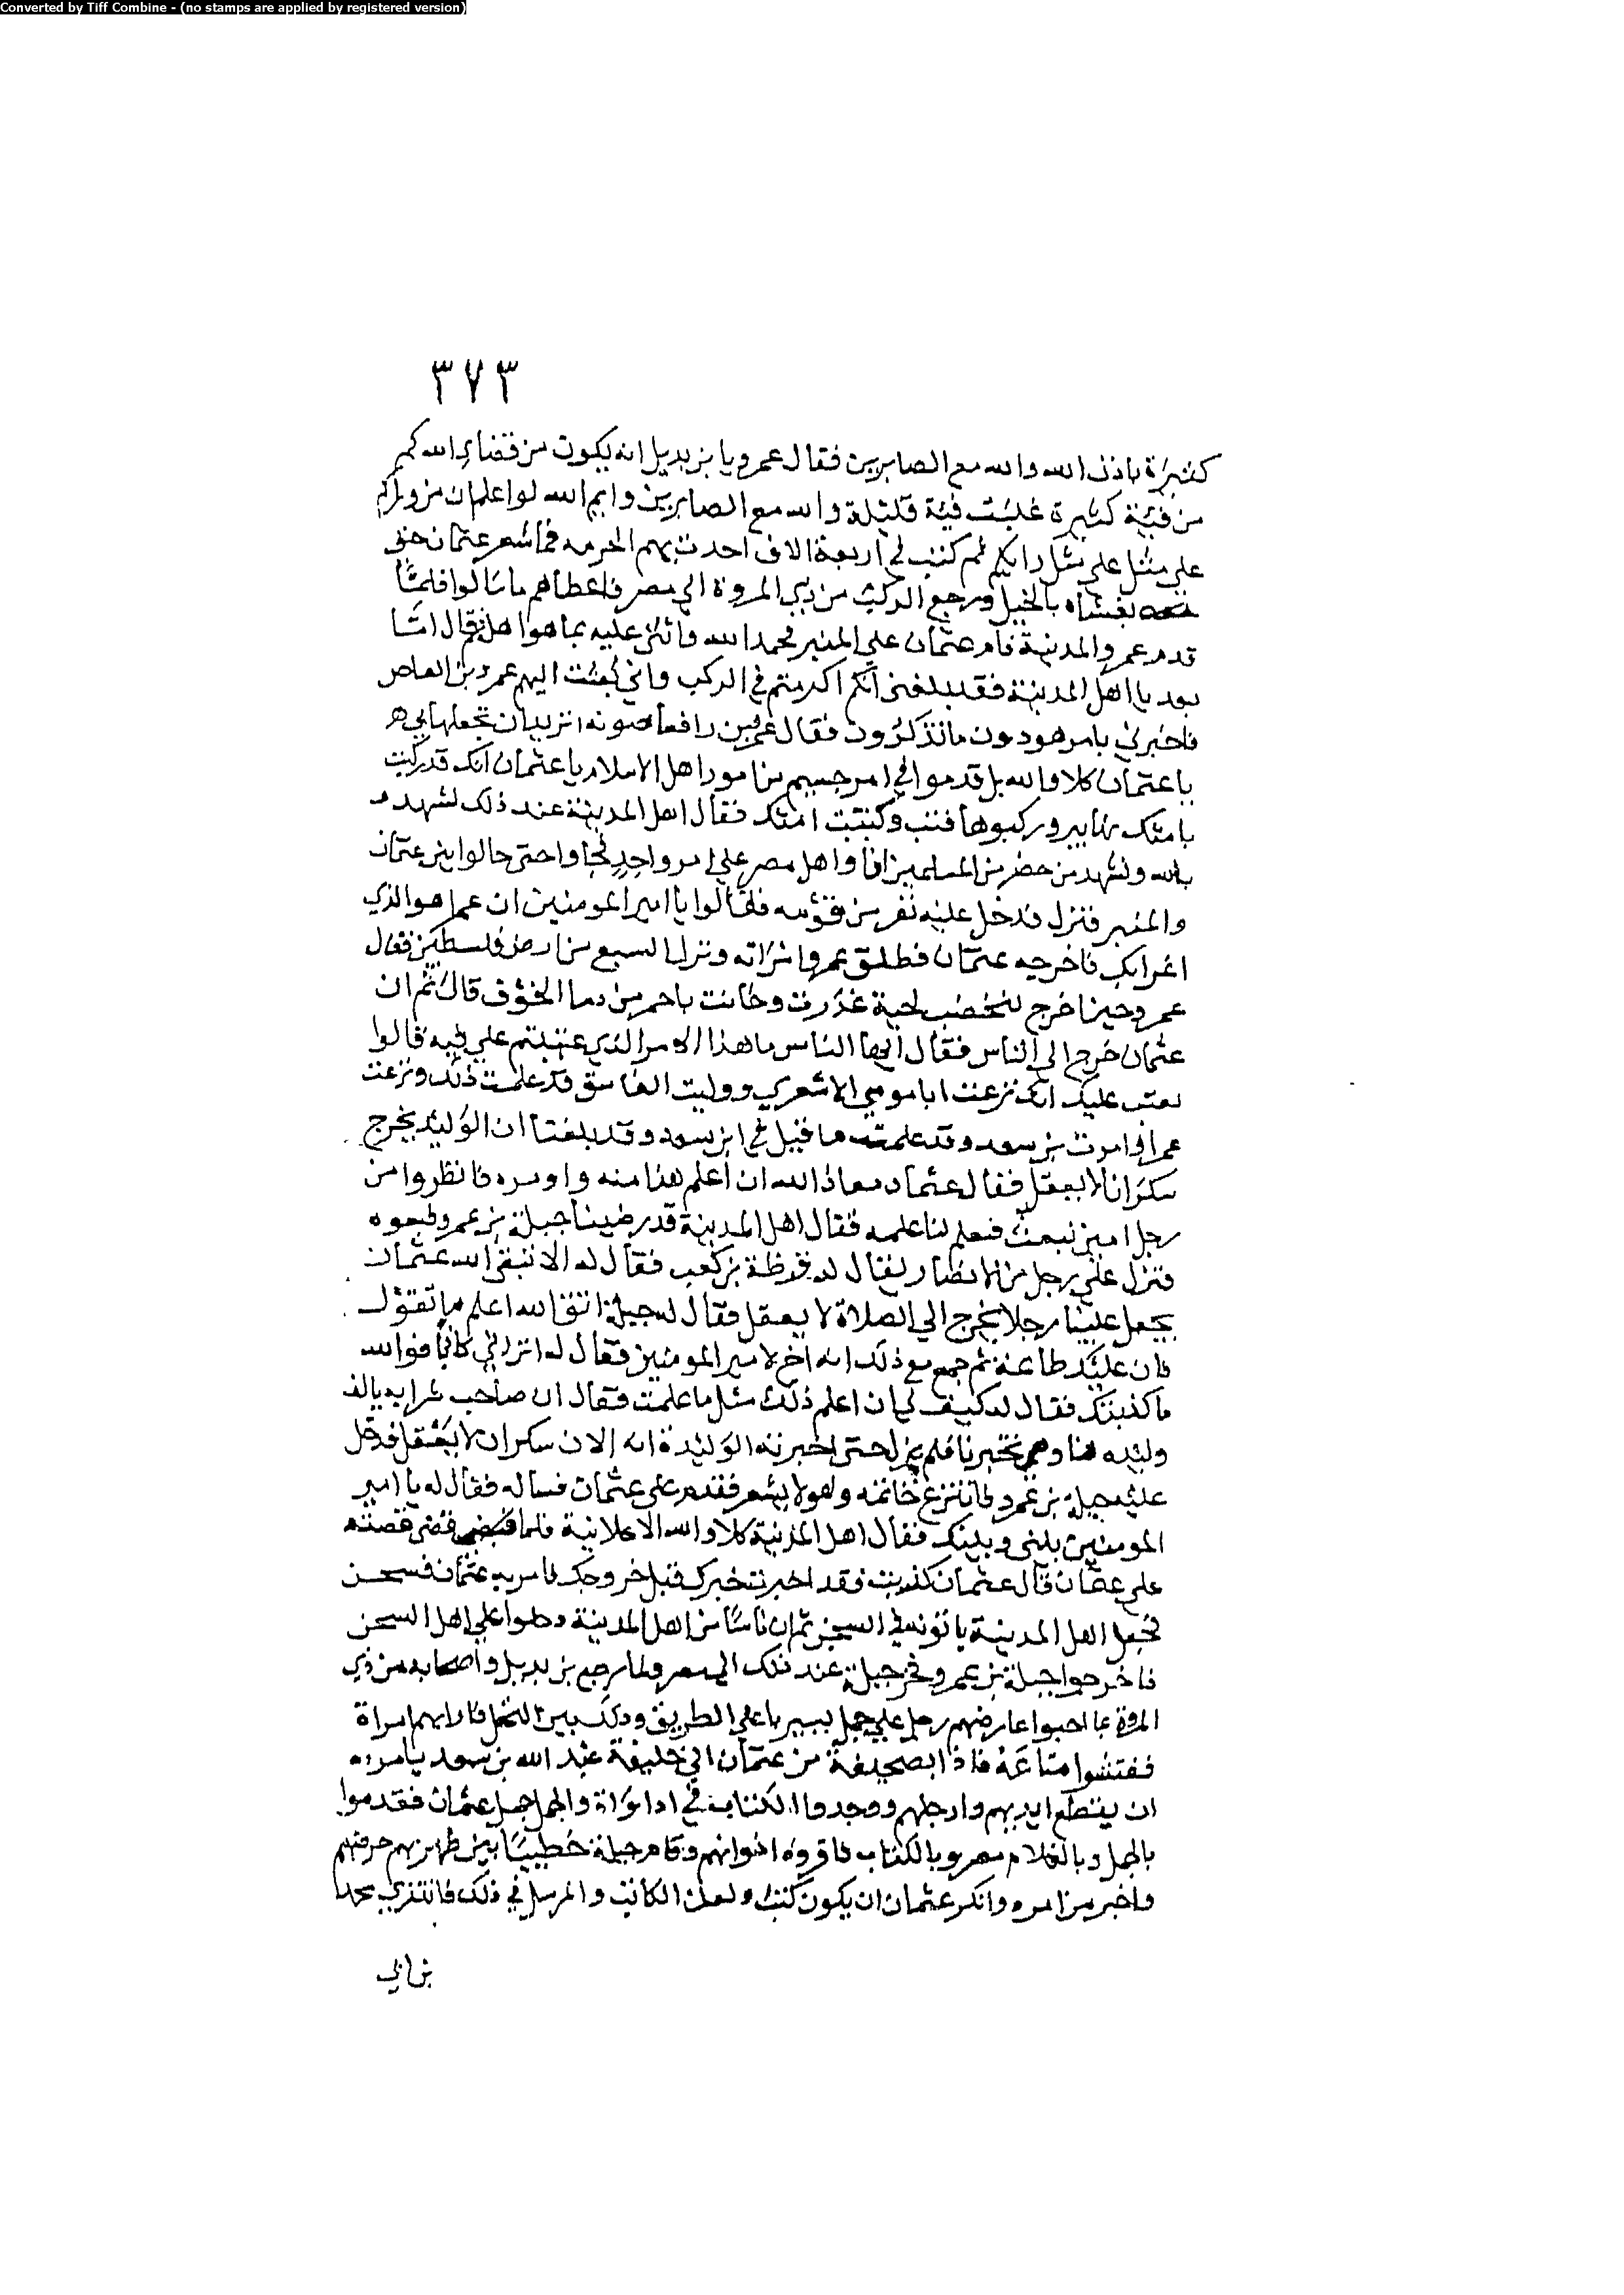 Converted by Tiff Combine - (no stamps are applied by registered version)
٣٧٣
كثيرة باذن الله والله مع الصابرين فقال عمرو يا بن بديل انه يكون من قضاء الله كم
من فئة كثيرة غلبت فية قليلة والله مع الصابرين وايم الله لو اعلم ان من ورائكم
على مثل على مثل رايكم ثم كنتم لي اربعة الاف احدث بهم فما شعر عثمان حتى
نغشاه بالخيل ورجع الركب من ذي المروة الى مصر فاعطاهم ما سالوا فلما
قدم عمرو المدينة قام عثمان على المنبر فحمد الله فاثنى عليه بما هو اهله ثم قال اما
بعد يا اهل المدينة فقد بلغنى انكم اكثرتم في الركب واني بعثت اليهم عمرو بن العاص
فاخبرني بامر هو دون ما تذكرون فقال عمرو بن رافعا صوته اتريد ان تجعلها بي
يا عثمان كلا والله بل قدموا في امر جسيم من امور اهل الاسلام يا عثمان انك قد ركبت
بامتك نهابير وركبوها فتب وتابت امتك فقال اهل المدينة عند ذلك نشهد
بالله ونشهد من حضر من المسلمين انا واهل مصر على امر واحد فجاوا حتى حالوا بين عثمان
والمنبر فنزل فدخل عليه نفر من قومه فقالوا يا امير المومنين ان عمرا هو الذي
اغرابك فاخرجه عثمان فطلق عمرو امراته ونزل السبع من ارض فلسطين فقال
عمرو حين اخرج لتخضب لحية غدرت وخانت باحمر من دما الخوف قال ثم ان
عثمان خرج الى الناس فقال ايها الناس ما هذا الامر الذي عتبتم علي فيه قالوا
نعتب عليك انك نزعت ابا موسى الاشعري ووليت الفاسق قد علمت ذلك ونزعت
عمرا وامرت بن سعد وقد علمت ما قيل في ابن سعد وقد بلغنا ان الوليد يخرج
سكرانا لا يعقل فقال عثمان معاذ الله ان اعلم هذا منه واومره فانظروا من
رجل امين نبعث فيعلم لنا علمه فقال اهل المدينة قد رضينا جبلة بن عمرو فبعثوه
فنزل على رجل من الانصار يقال له قرظة بن كعب فقال له الا تتقى الله عثمان
يجعل علينا رجلا يخرج الى الصلاة لا يعقل فقال له جبلة اتق الله اعلم ما تقول
فان عليك طاعته ثم جمع مع ذلك انه اخ لامير المومنين فقال له اتراني كاذبا فوالله
ما كذبتك فقال له كيف لي ان اعلم ذلك مثل ما علمت فقال ان صاحب شرابه يالف
وليده هنا وهى تخبرنا فلم يزل حتى اخبرته الوليدة انه الان سكران لا يعقل فدخل
عليه جبلة بن عمرو فانتزع خاتمه وهو لا يشعر فقدم على عثمان فساله فقال له يا امير
المومنين بينى وبينك فقال اهل المدينة كلا والله الا علانية فلما قضى قصته
على عثمان قال عثمان كذبت فقد اخبرت خبرك قبل خروجك فامر به عثمان فسجن
فجعل اهل المدينة ياتونه في السجن ثم ان ناسا من اهل المدينة دخلوا على اهل السجن
فاخرجوا جبلة بن عمرو فخرج جبلة عند ذلك الى مصر ولما رجع بن بديل واصحابه من ذي
المروة بما احبوا عارضهم رجل على جمل يسير على الطريق
ففتشوا متاعه فاذا بصحيفة من عثمان الى خليفة عبد الله بن سعد يامره
ان يقطع ايديهم وارجلهم ووجدوا الكتاب في اداوة والجمل جمل عثمان فقدموا
بالجمل وبالغلام مصر وبالكتاب فاقروه اخوانهم وقام جبلة خطيبا بين ظهرينهم
واخبر من امره وانكر عثمان ان يكون كتب ولعن الكاتب والمرسل في ذلك فانتزى محمد
بن ابي